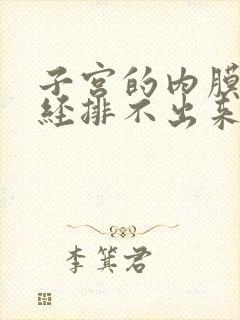 子宫的内膜
经排不出来
李箕君